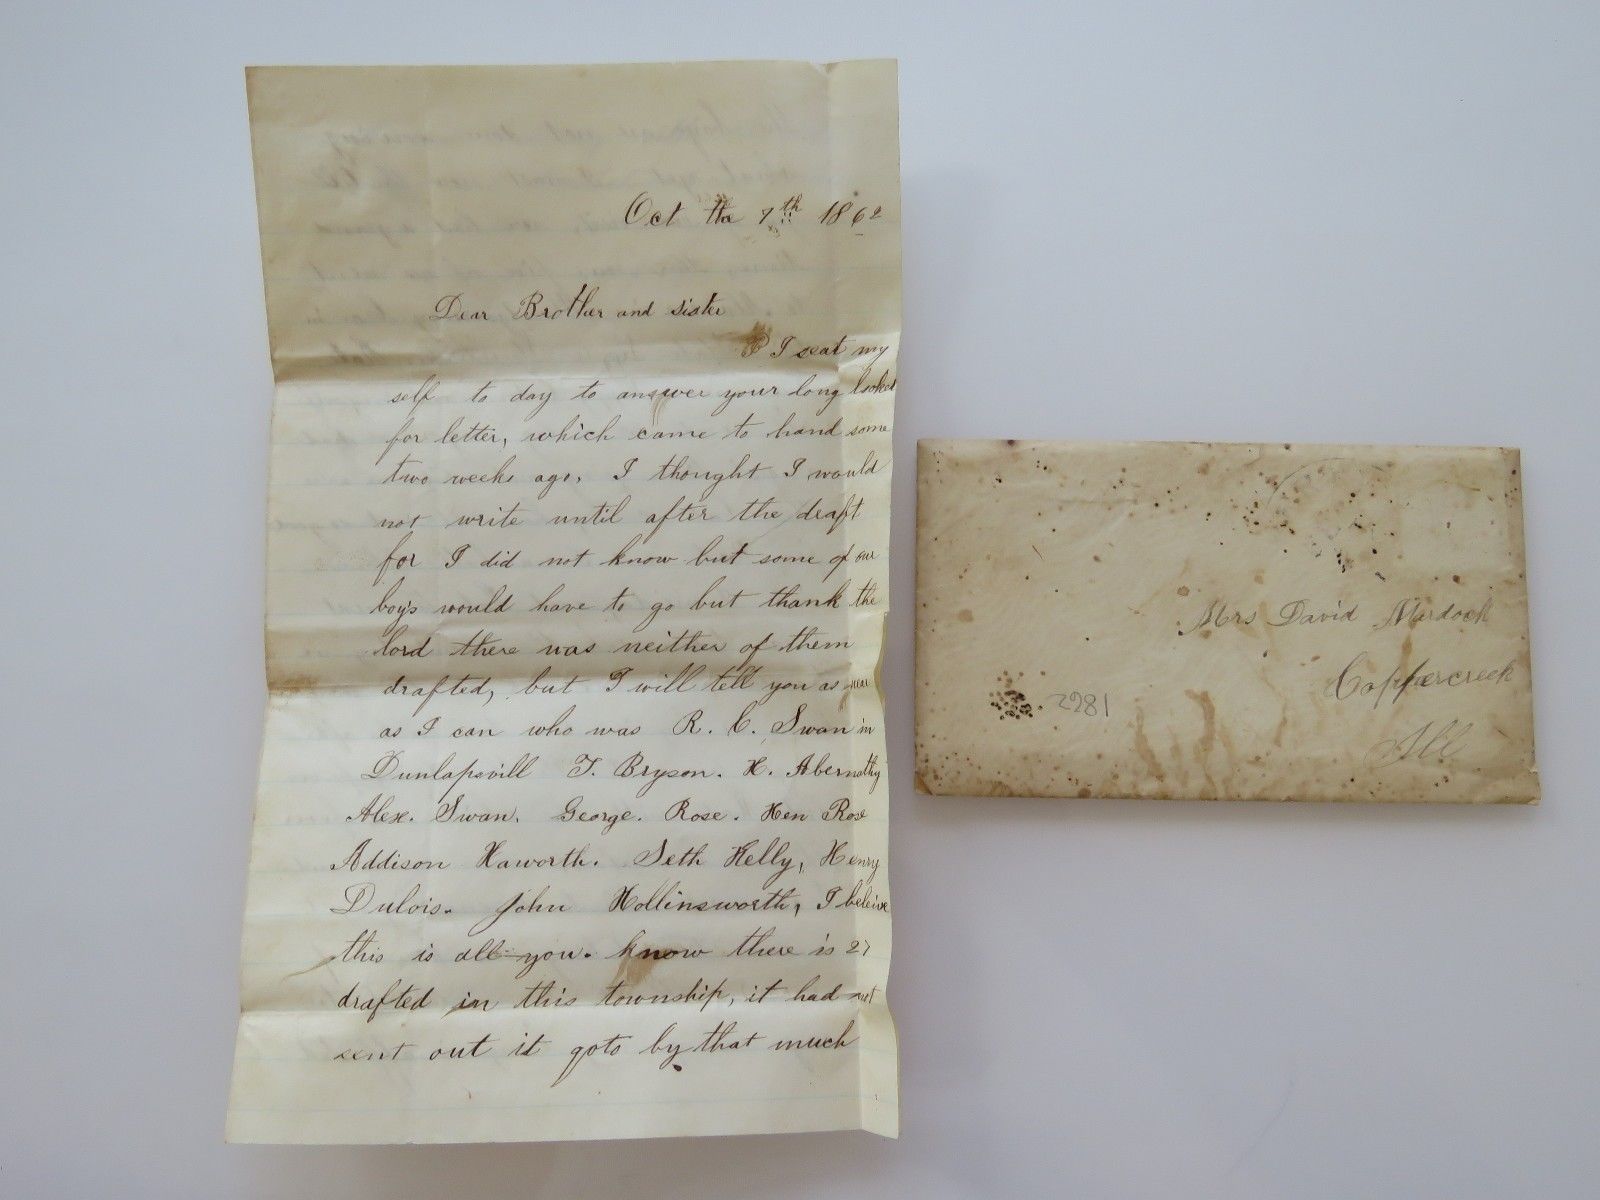 Oct the 7th 1862
Dear Brother and sister
I seat my
self to day to answer your long looked
for letter, which came to hand some
two weeks ago, I thought I would
not write until after the draft
for I did not know but some of our
boys would have to go but thank the
lord there was neither of them
drafted, but I will tell you as near
as I can who was R. C. Swan in
Dunlapsvill T. Bryson. H. Abernathy
Alex. Swan. George. Rose. Hen Rose
Addison Haworth. Seth Kelly, Henry
Dulois. John Hollinsworth, I beleive
this is all you. know there is 27
drafted in this township, it had not
sent out it goto by that much
Mrs David Murdock
Coppercreek
Ill
2281